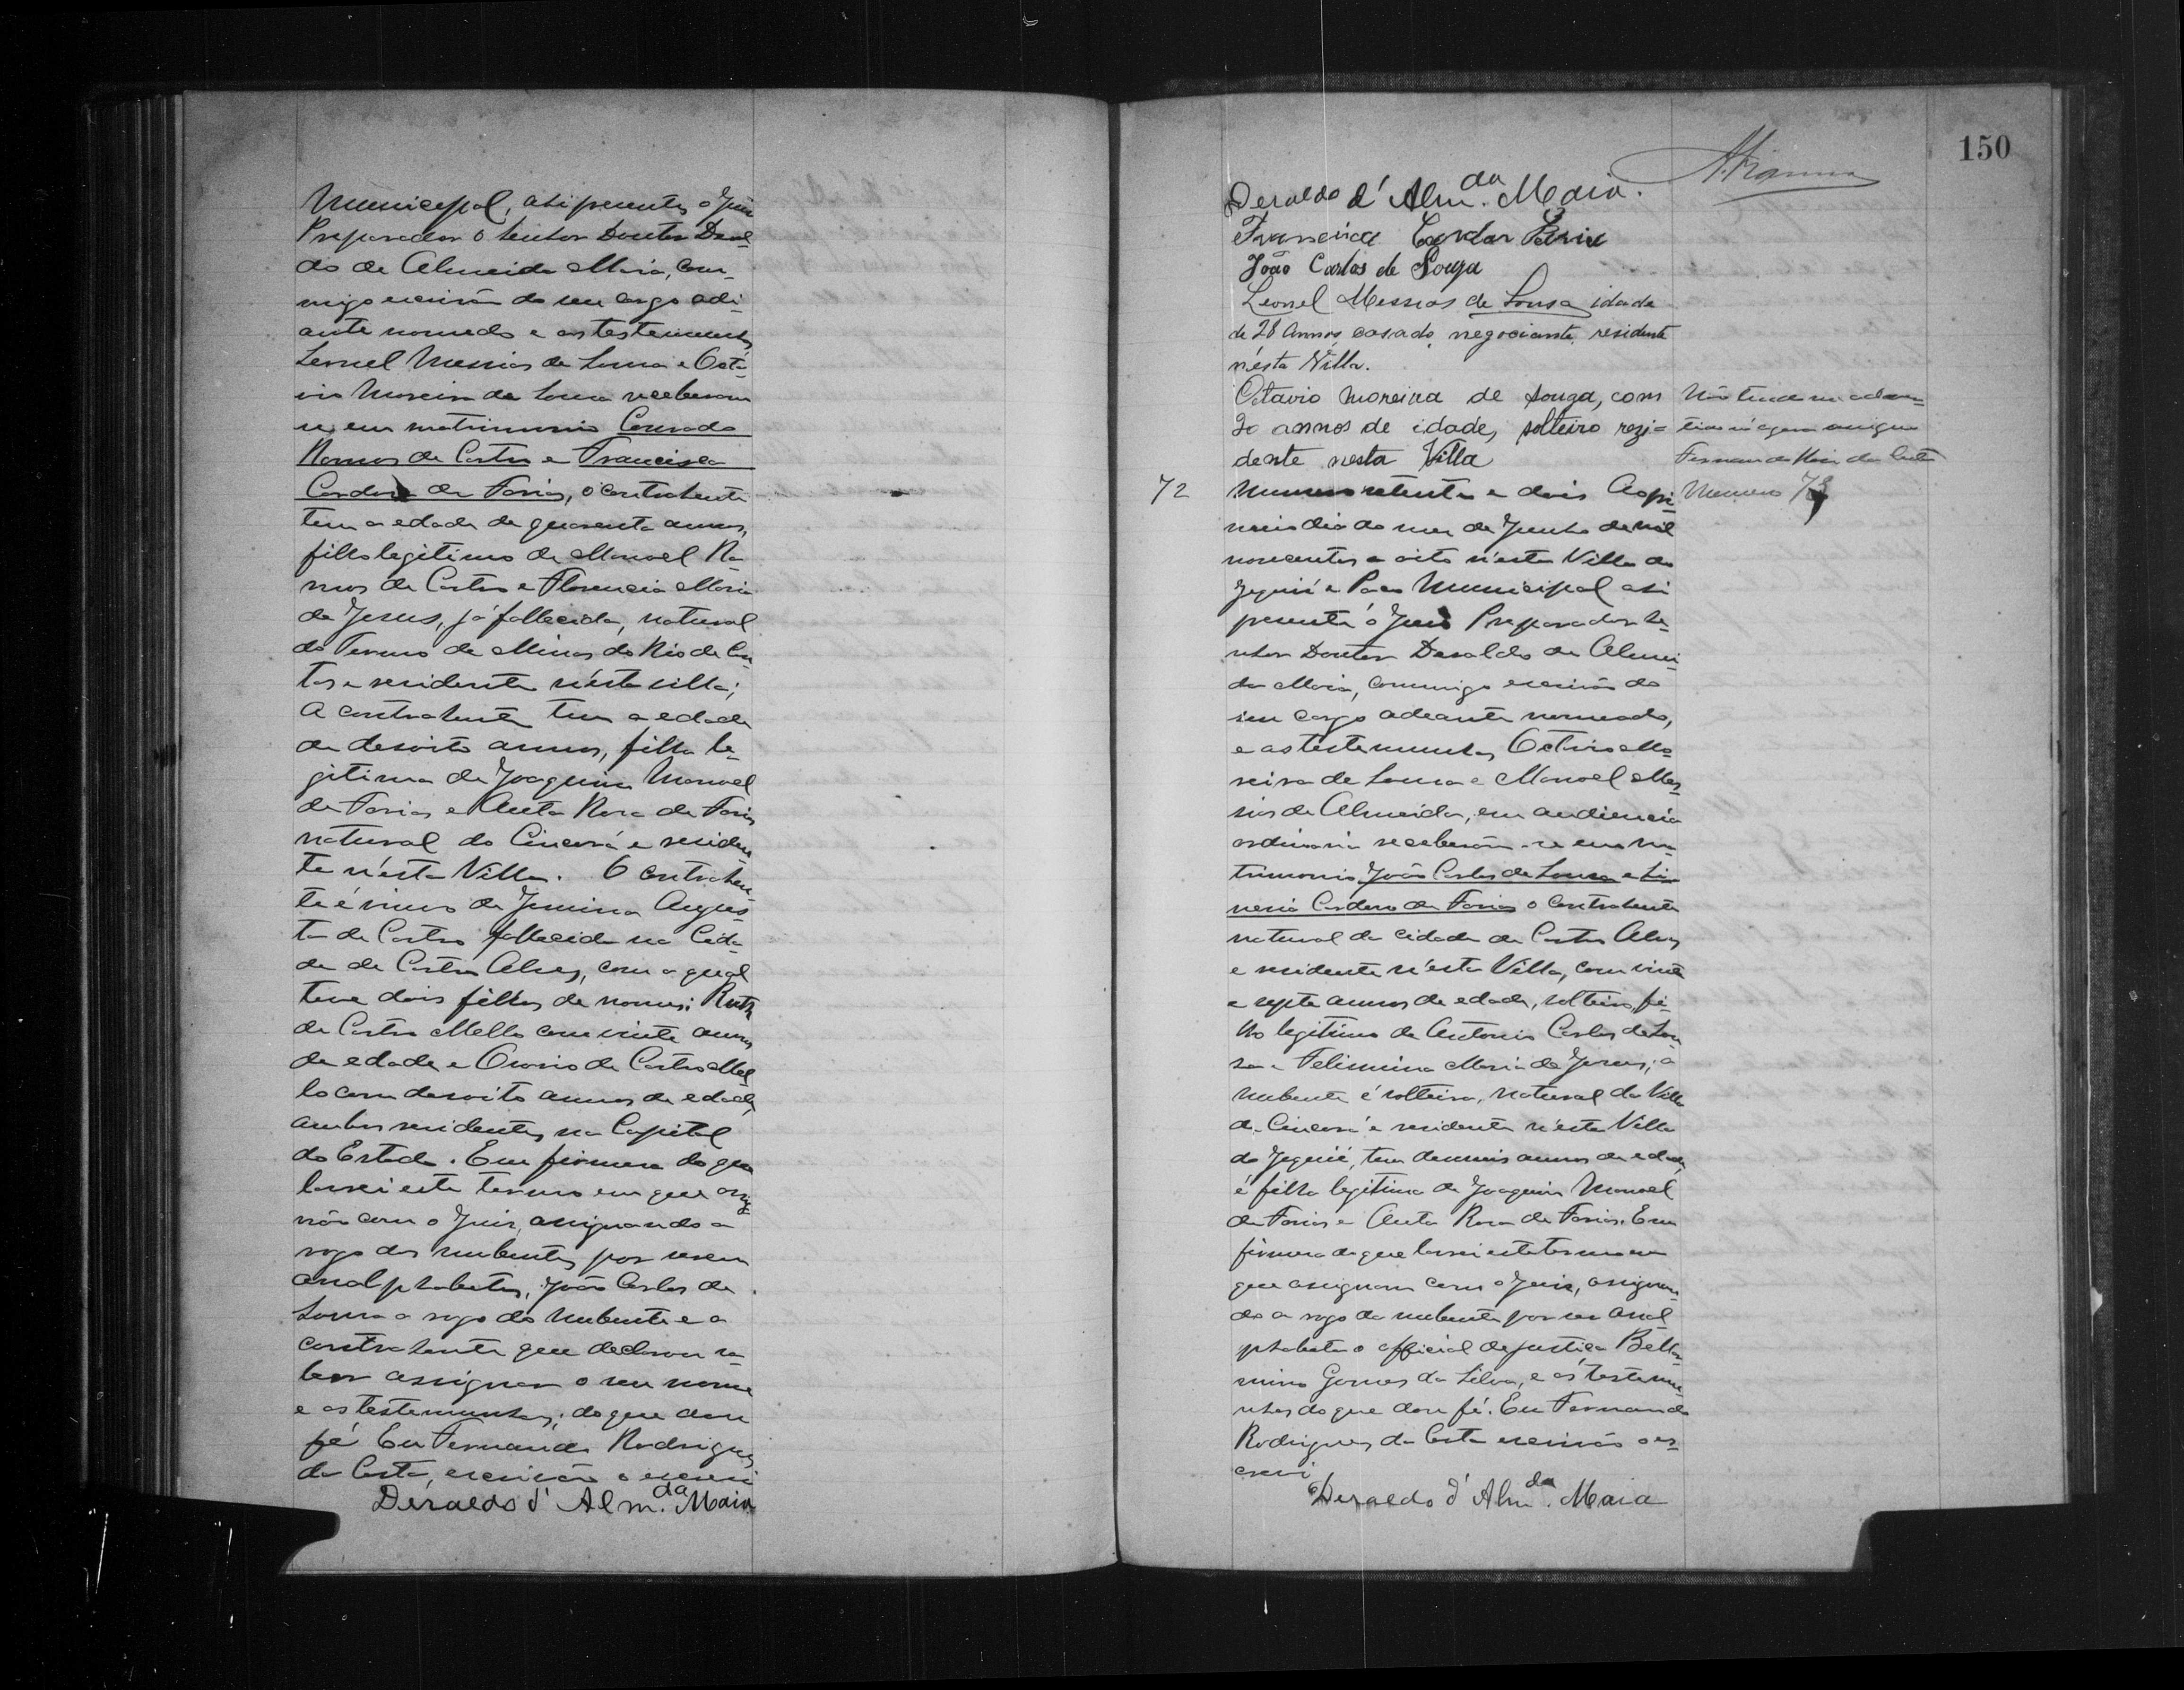 Municipal, ahi presentes o Juiz
Preparador o Senhor Doutor Deral-
do de Almeida Maia, com-
migo escrivão do seu cargo adi-
ante nomeado e as testemunhas
Leonel Messias de Sousa e Octá-
vio Moreira de Sousa receberam
se em matrimonio Conrado
Ramos de Castro e Francisca
Cordeiro de Farias, o contrahente
tem a edade de quarenta annos,
filho legitimo de Manoel Ra-
mos de Castro e Florencia Maria
de Jesus, já fallecida, natural
do Termo de Minas do Rio de Con-
tas e residente n'esta villa;
A contrahente tem a edade
de desoito annos, filha le-
gitima de Joaquim Manoel
de Farias e Anta Rosa de Farias
natural do Cincorá e residen-
te n'esta Villa. O contrahen-
te é viuvo de Jemina Augus-
ta de Castro fallecida na Cida-
de de Castro Alves, com a qual
teve dois filhos de nomes: Ruth
de Castro Mello com vinte annos
de edade e Osorio de Castro Mel-
lo com desoito annos de edade,
ambos residentes na Capital
do Estado. Em firmesa do que
lavrei este termo em que assig-
não com o Juiz, assignando a
rogo dos nubentes por serem
analphabetos, João Carlos de
Sousa a rogo do nubente e a
contrahente que declarou sa-
ber assignar o seu nome
e as testemunhas; do que dou
fé Eu Fernando Rodrigues
da Costa, escrivão o escrevi
Deraldo d' Alm.da Maia
150
Deraldo d' Alm.da Maia.
Francisca Cordar
João Carlos de Souza
Leonel Messias de Sousa idade
de 28 Annos, casado, negociante, residente
n'ésta Villa.
Octavio Moreira de Souza, com
20 annos de idade, solteiro rezi-
dente nesta Villa
Fernando da Costa
72
Numero setenta e dois Ao pri-
meiro dia do mez de Junho de mil
novecentos e oito n'esta Villa de
Jequié e Paço Municipal ahi
presente o Juiz Preparador Se-
nhor Doutor Deraldo de Almei-
da Maia, commigo escrivão do
seu cargo adeante nomeado,
e as testemunhas Octavio Mo-
reira de Sousa e Manoel Mes-
sias de Almeida, em audiencia
ordinaria receberão-se em ma-
trimonio João Carlos de Sousa e
Cordeiro de Farias o contrahente
natural da cidade de Castro Alves
e residente n'esta Villa, com vinte
e septe annos de edade, solteiro, fi-
lho legitimo de Antonio Carlos de Sou-
sa e Felismina Maria de Jesus; a
nubente é solteira, natural da Villa
de Cincorá e residente n'esta Villa
de Jequié, tem deseseis annos de edade,
é filha legitima de Joaquim Manoel
de Farias e Anta Rosa de Farias. Em
firmesa do que lavrei este termo em
que assignam com o Juiz, assignan-
do a rogo da nubente por ser anal-
phabeta o official de justiça Bellar-
mino Gomes da Silva, e as testemu-
nhas do que dou fé. Eu Fernando
Rodrigues da Costa escrivão o es-
crevi
Deraldo d' Alm.da Maia
Numero 72